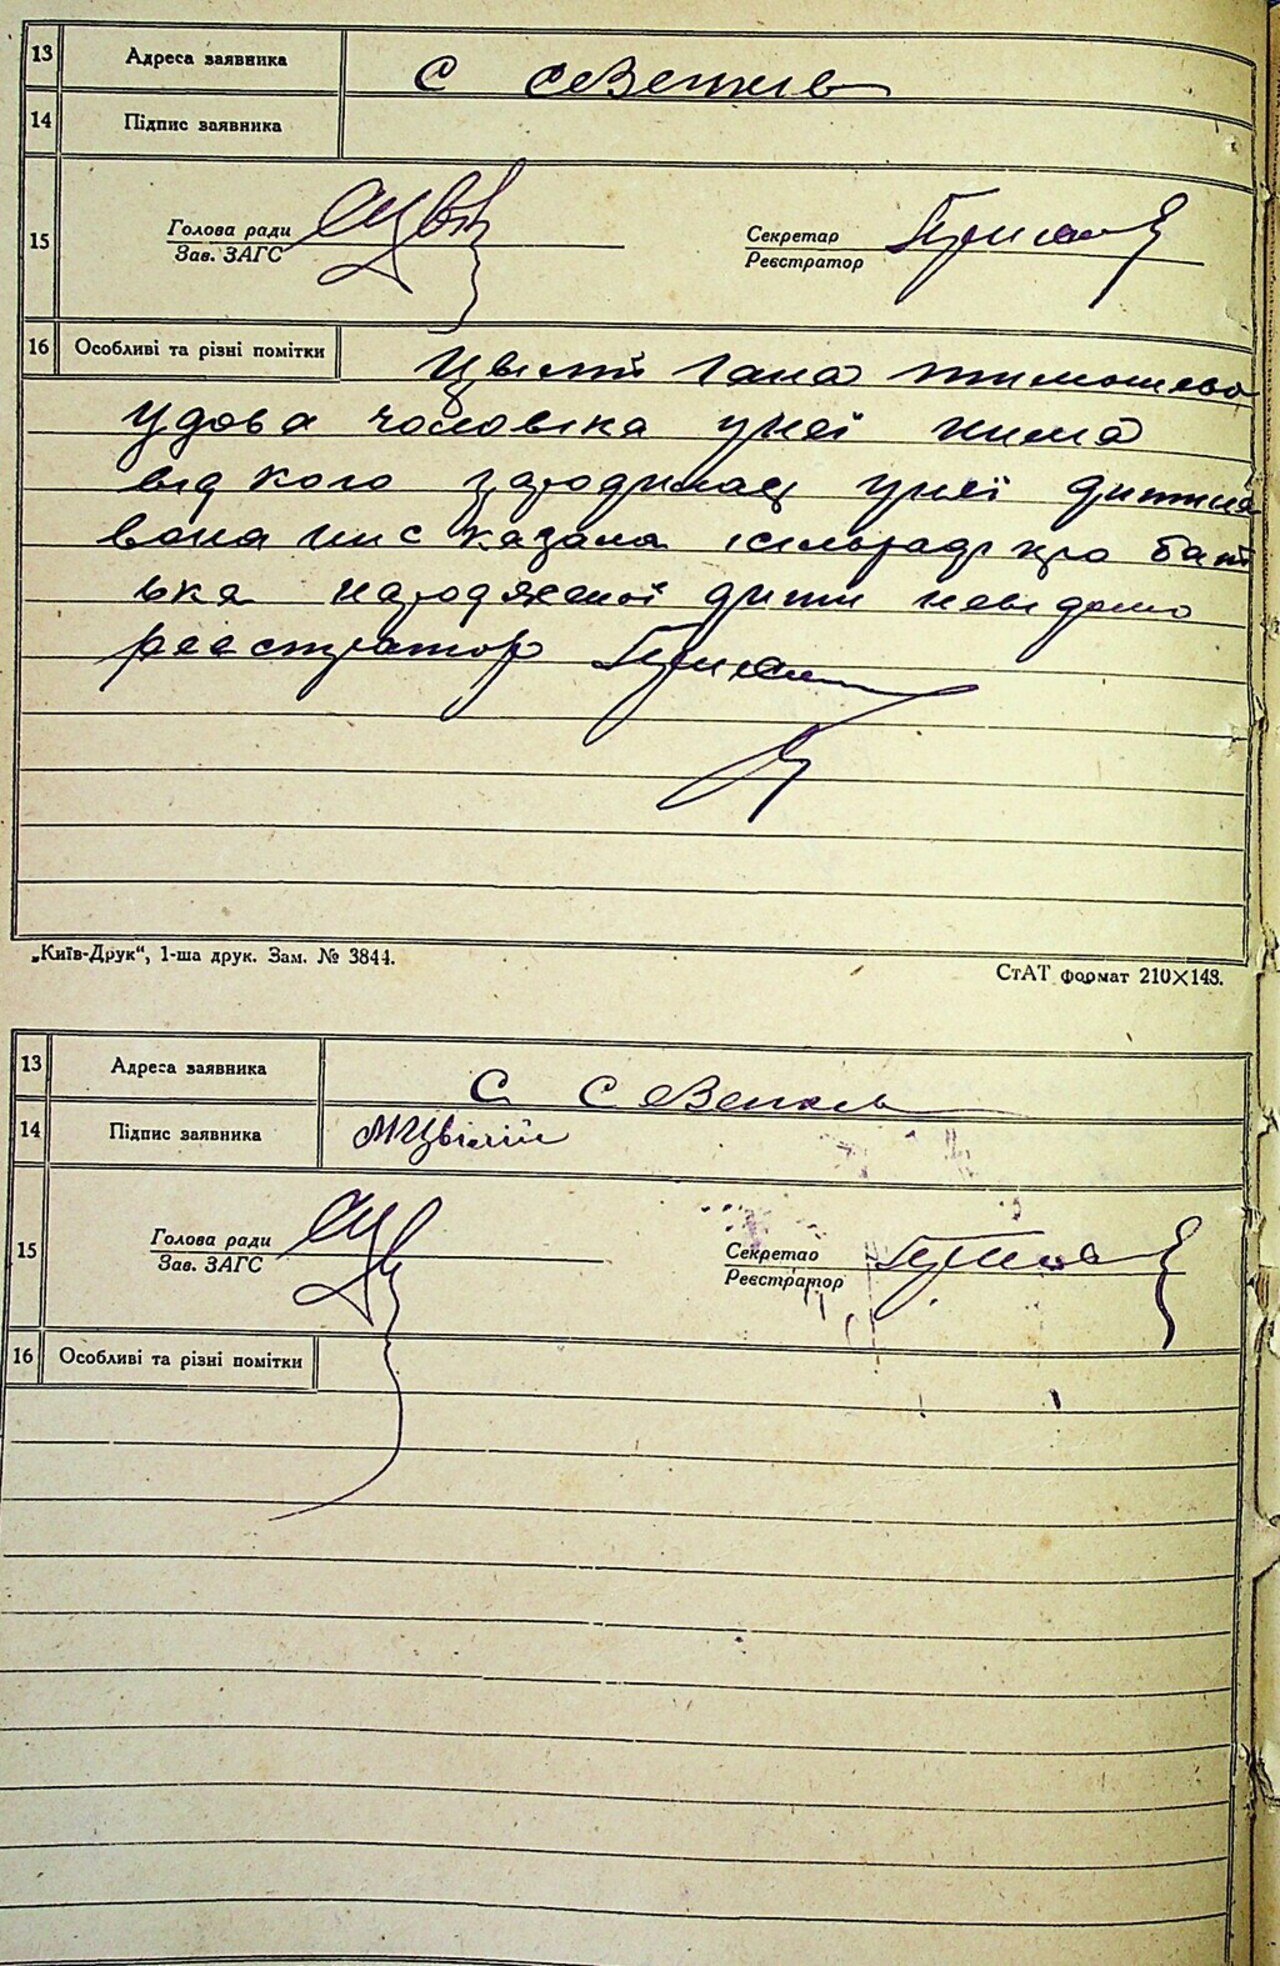 13 Адреса заявника с севенків
14 Підпис заявника
15 Голова ради Секретар
Зав. ЗАГС Реєстратор
16 Особливі та різні помітки Цвілій Гана тимошєво
удова чоловіка унеї нима
від кого зародилась унеї дитина
вона ни с казала ісільраді про бать
ька народженої дити невідомо
реєстратор
„Київ-Друк“, 1-ша друк. Зам. № 3844.
СтАТ формат 210×148.
13 Адреса заявника С севенків
14 Підпис заявника МЦвілій
15 Голова ради Секретар
Зав. ЗАГС Реєстратор
16 Особливі та різні помітки